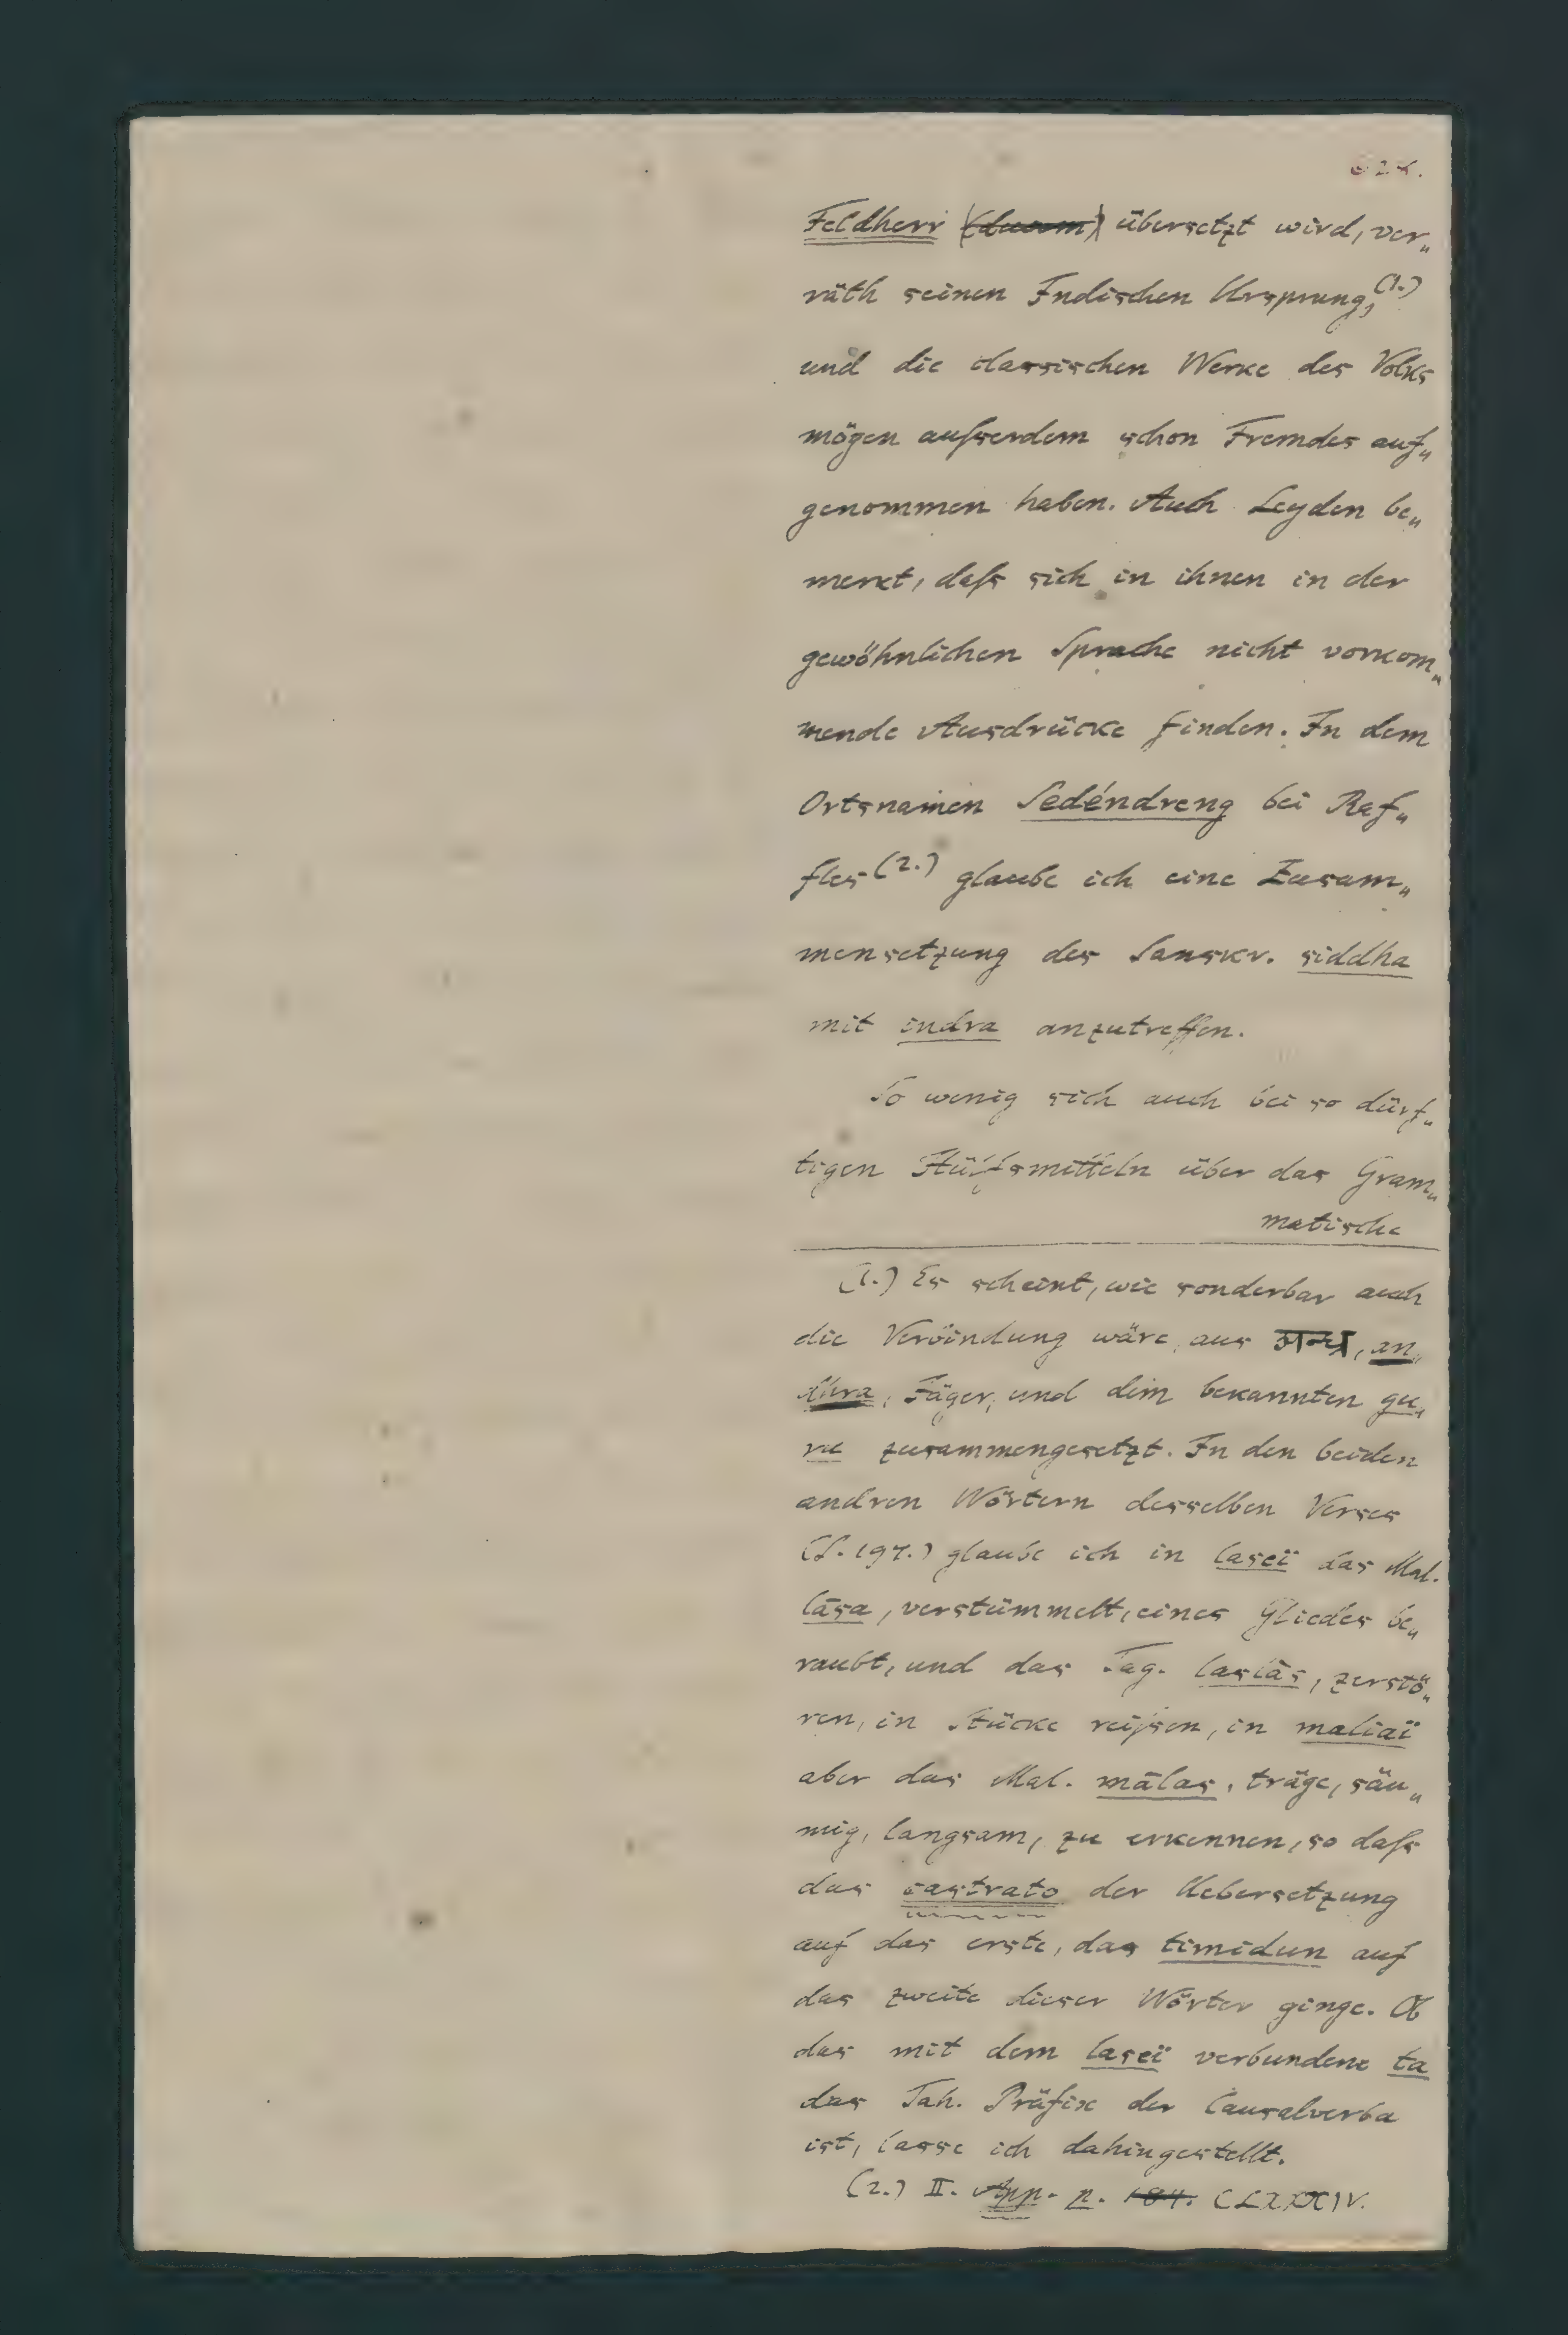 624.
Feldherr (ducem) übersetzt wird, ver„
räth seinen Indischen Ursprung,(1.)
und die classischen Werke des Volks
mögen aufserdem schon Fremdes auf„
genommen haben. Auch Leyden be„
merkt, dafs sich in ihnen in der
gewöhnlichen Sprache nicht vorkom„
mende Ausdrücke finden. In dem
Ortsnamen Sedéndreng bei Raf„
fles(2.) glaube ich eine Zusam„
mensetzung des Sanskr. siddha
mit indra anzutreffen.
So wenig sich auch bei so dürf„
tigen Hülfsmitteln über das Gram„
matische
(1.) Es scheint, wie sonderbar auch
die Verbindung wäre, aus अन्ध्र, an„
dhra, Jäger, und dem bekannten gu„
ru zusammengesetzt. In den beiden
andren Wörtern desselben Verses
(S. 197.) glaube ich in laseï das Mal.
lāsa, verstümmelt, eines Gliedes be„
raubt, und das Tag. laslàs, zerstö„
ren, in Stücke reifsen, in maliaï
aber das Mal. mālas, träge, säu„
mig, langsam, zu erkennen, so dafs
das castrato der Uebersetzung
auf das erste, das timidun auf
das zweite dieser Wörter ginge. Ob
das mit dem laseï verbundene ta
das Tah. Präfix der Causalverba
ist, lasse ich dahingestellt.
(2.) II. App. p. 184. CLXXXIV.